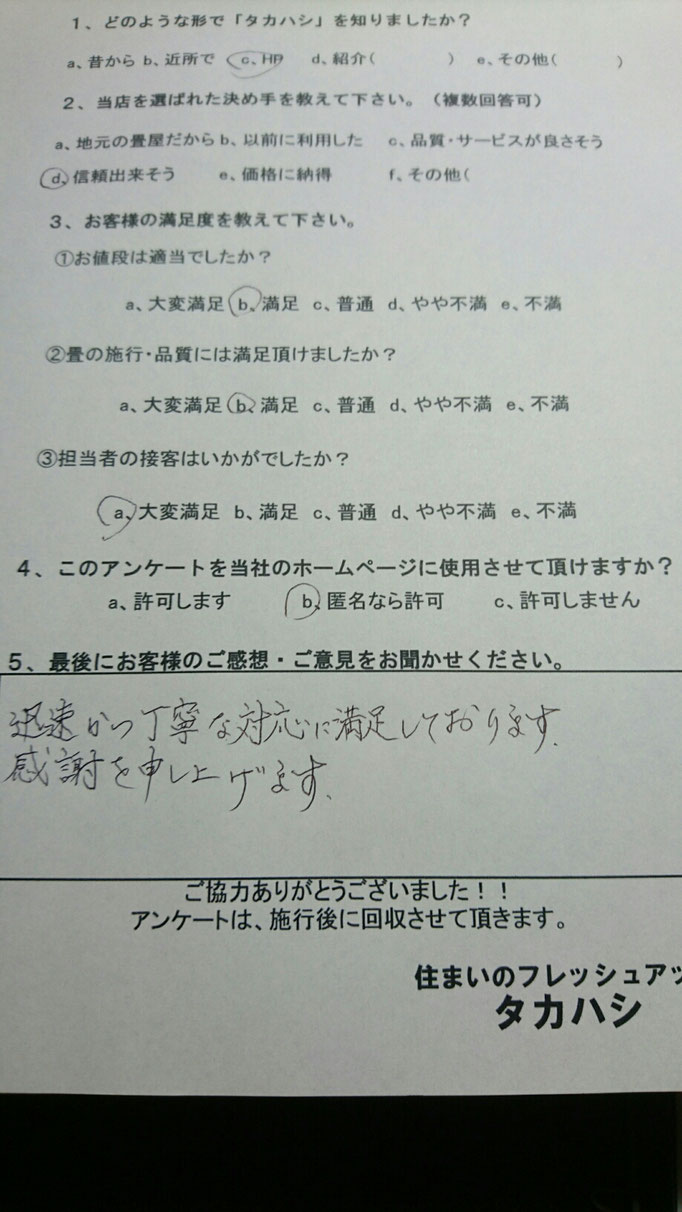 1、どのような形で「タカハシ」を知りましたか？
a、昔から b、近所で c、HP d、紹介( ) e、その他( )
2、当店を選ばれた決め手を教えて下さい。（複数回答可）
a、地元の畳屋だから b、以前に利用した c、品質・サービスが良さそう
d、信頼出来そう e、価格に納得 f、その他(
3、お客様の満足度を教えて下さい。
①お値段は適当でしたか？
a、大変満足 b、満足 c、普通 d、やや不満 e、不満
②畳の施行・品質には満足頂けましたか？
a、大変満足 b、満足 c、普通 d、やや不満 e、不満
③担当者の接客はいかがでしたか？
a、大変満足 b、満足 c、普通 d、やや不満 e、不満
4、このアンケートを当社のホームページに使用させて頂けますか？
a、許可します b、匿名なら許可 c、許可しません
5、最後にお客様のご感想・ご意見をお聞かせください。
迅速かつ丁寧な対応に満足しております.
感謝を申し上げます.
ご協力ありがとうございました！！
アンケートは、施行後に回収させて頂きます。
住まいのフレッシュアッ
タカハシ